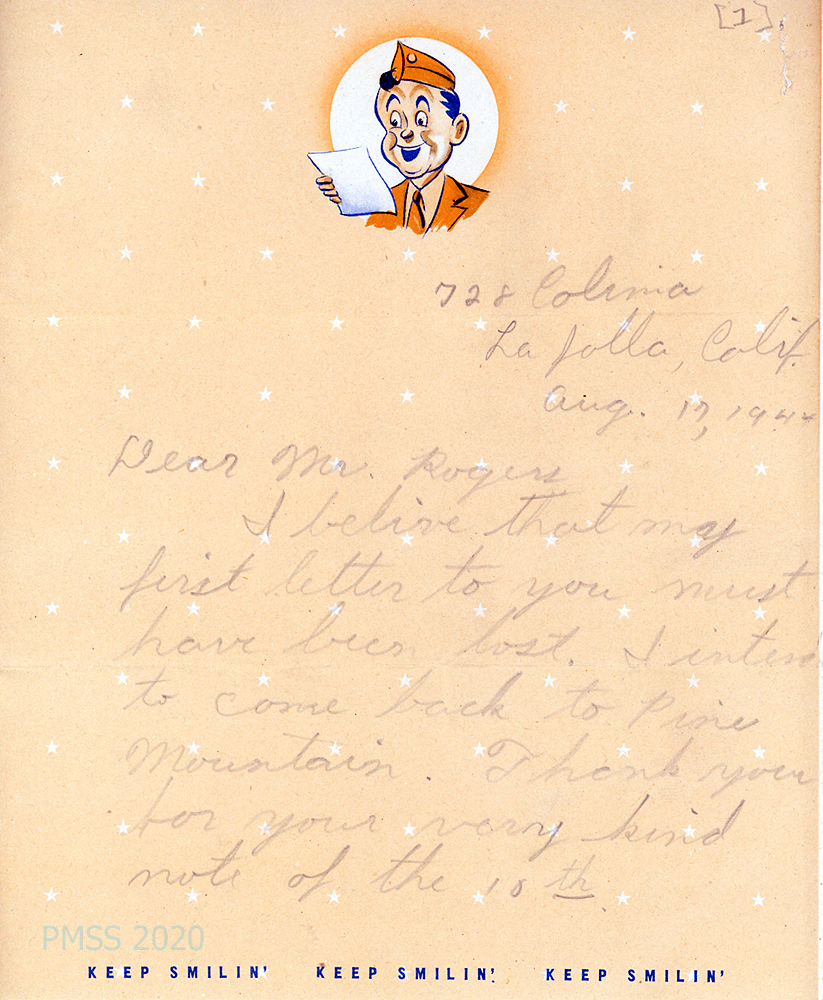 [1]
728 Colima
La Jolla, Calif.
Aug. 17, 1944
Dear Mr. Rogers
I belive that my
first letter to you must
have been lost. I intend
to come back to Pine
Mountain. Thank you
for your very kind
note of the 10th.
PMSS 2020
KEEP SMILIN' KEEP SMILIN' KEEP SMILIN'